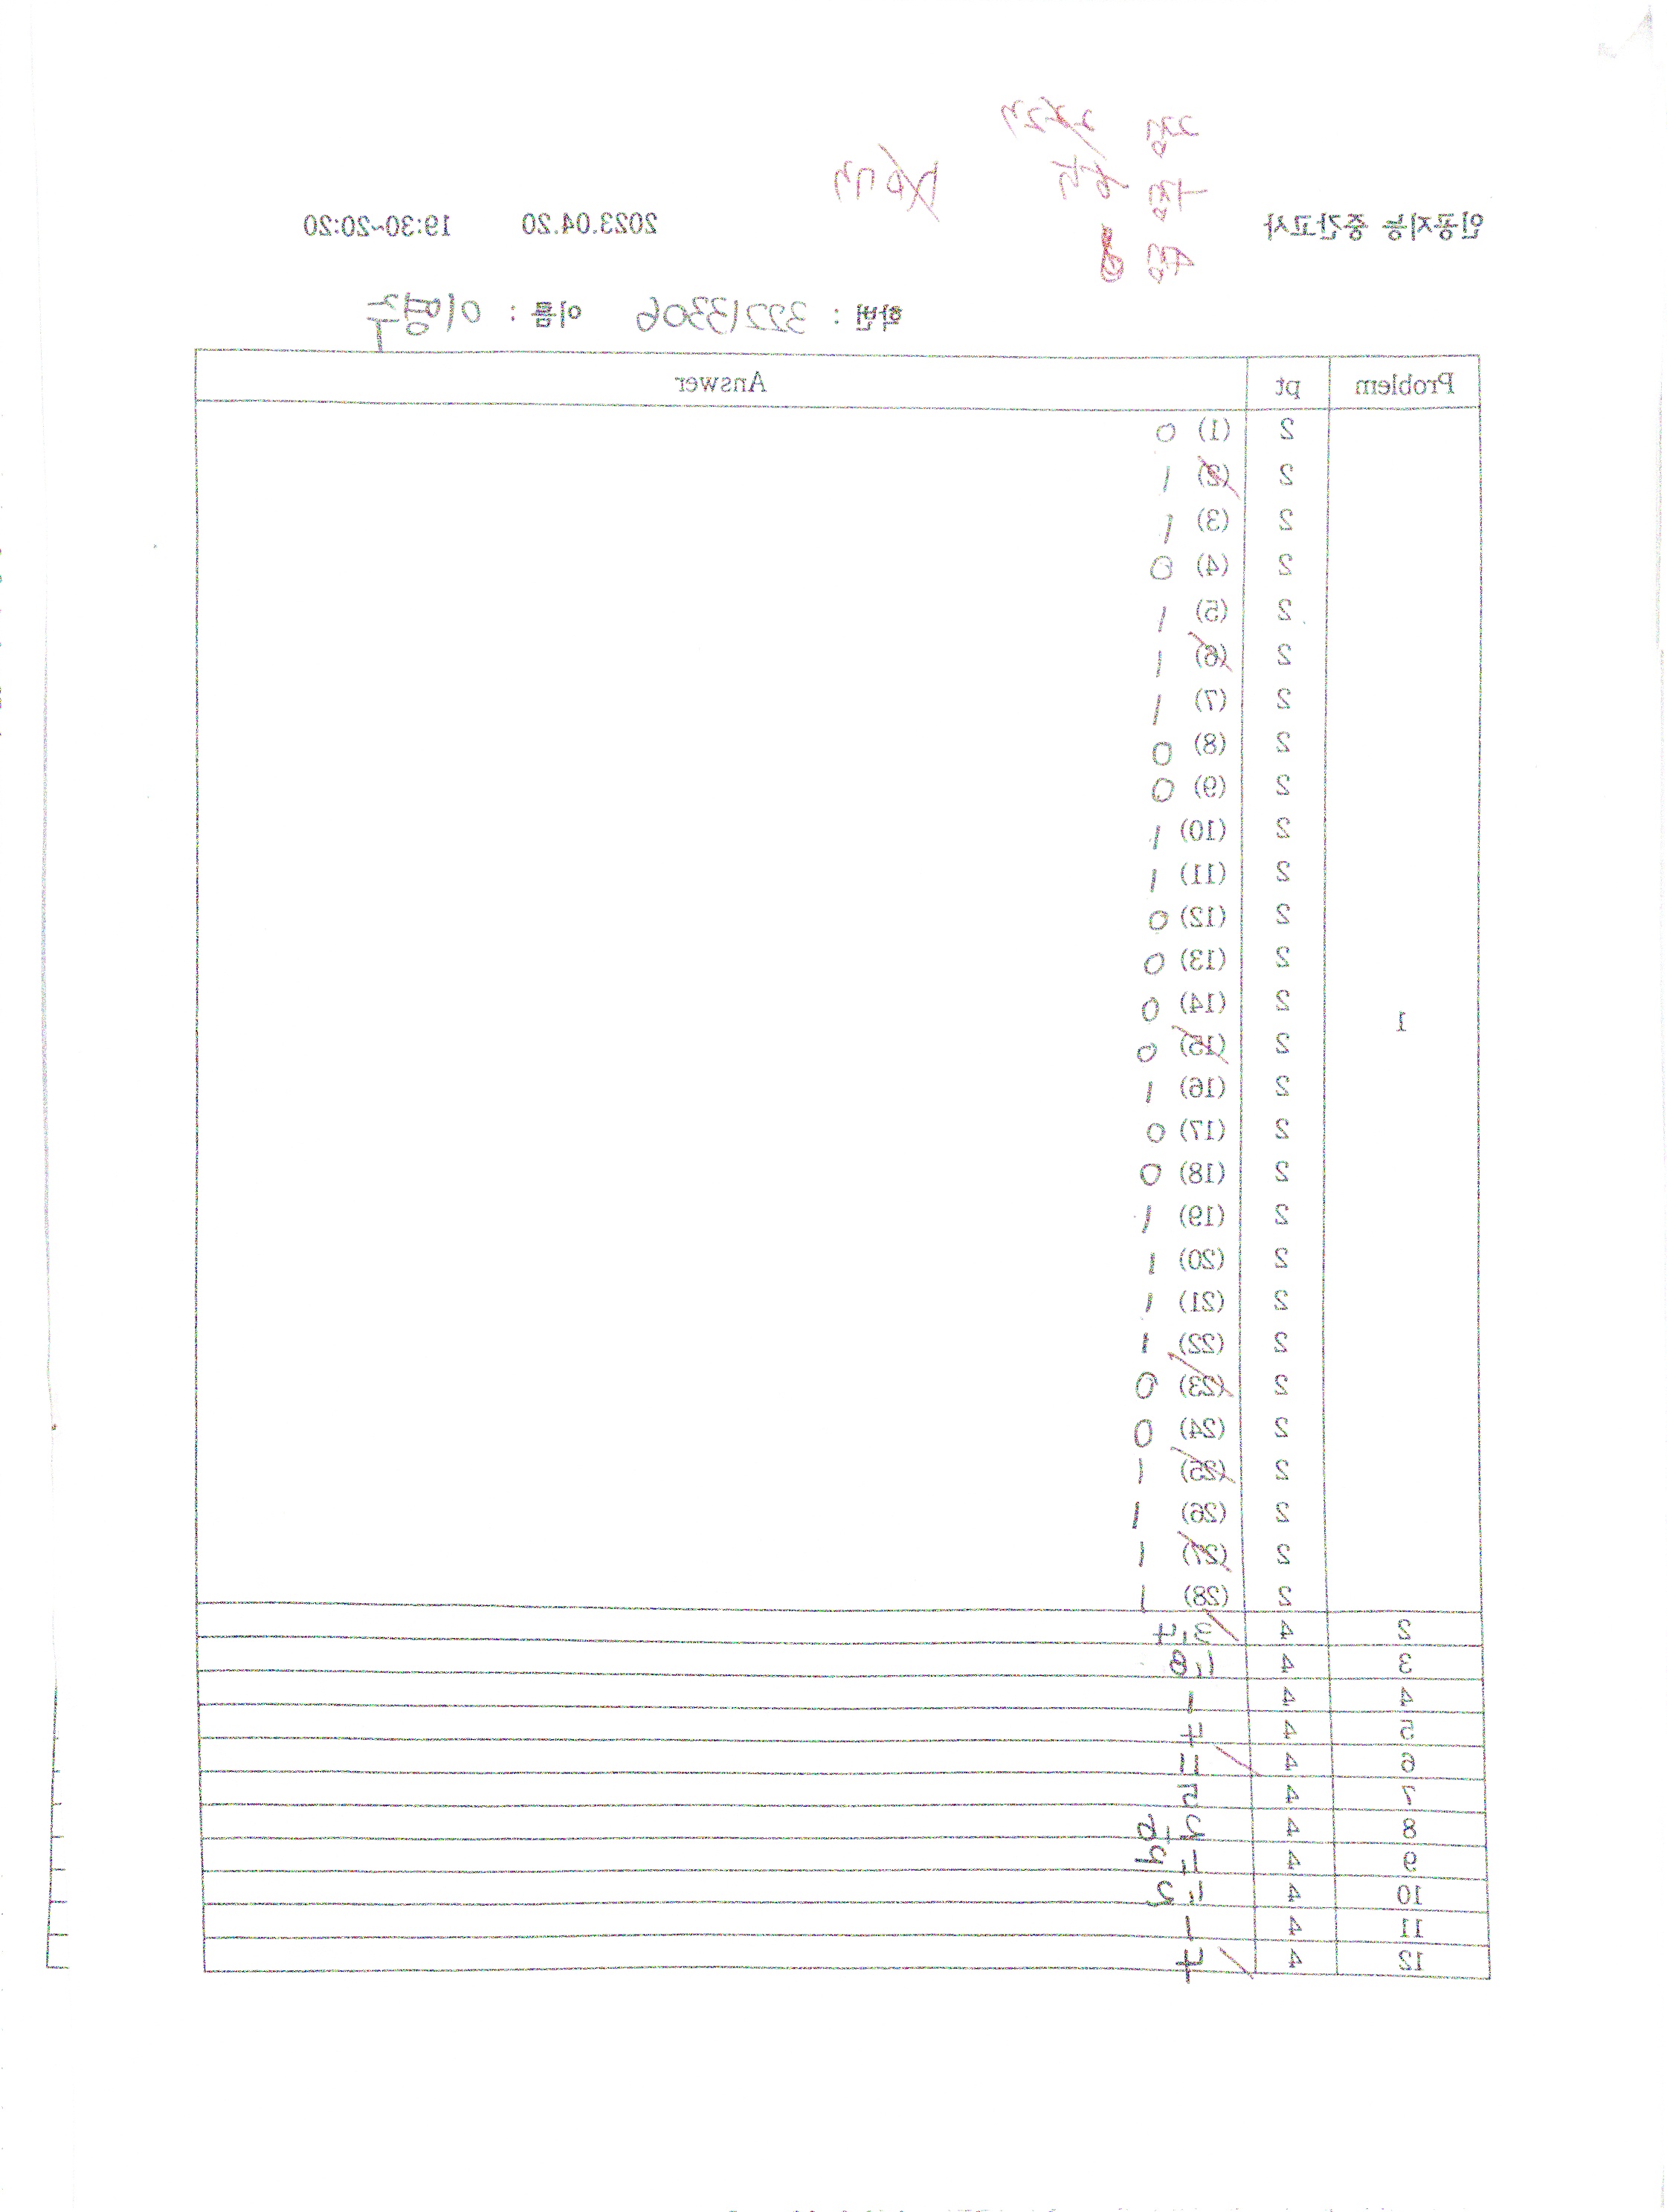 인공지능 중간고사 2023.04.20 19:30~20:20
학번 : 32213306 이름 : 이명주
Problem pt Answer
1
2 (1) 0
2 (2) 1
2 (3) 1
2 (4) 0
2 (5) 1
2 (6) 1
2 (7) 1
2 (8) 0
2 (9) 0
2 (10) 1
2 (11) 1
2 (12) 0
2 (13) 0
2 (14) 0
2 (15) 0
2 (16) 1
2 (17) 0
2 (18) 0
2 (19) 1
2 (20) 1
2 (21) 1
2 (22) 1
2 (23) 0
2 (24) 0
2 (25) 1
2 (26) 1
2 (27) 1
2 (28) 1
2 4 3,4
3 4 1,8
4 4 1
5 4 4
6 4
7 4 5
8 4
9 4
10 4 1,2
11 4 1
12 4 4